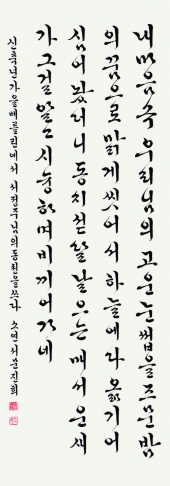 내 마음 속 우리 님의 고운 눈썹을 즈믄 밤
의 꿈으로 맑게 씻어서 하늘에다 옮기어
심어 놨더니 동지섣달 날으는 매서운 새
가 그걸 알고 시늉하며 비끼어 가네
신묘년 가을 서정주님의 동천을 쓰다